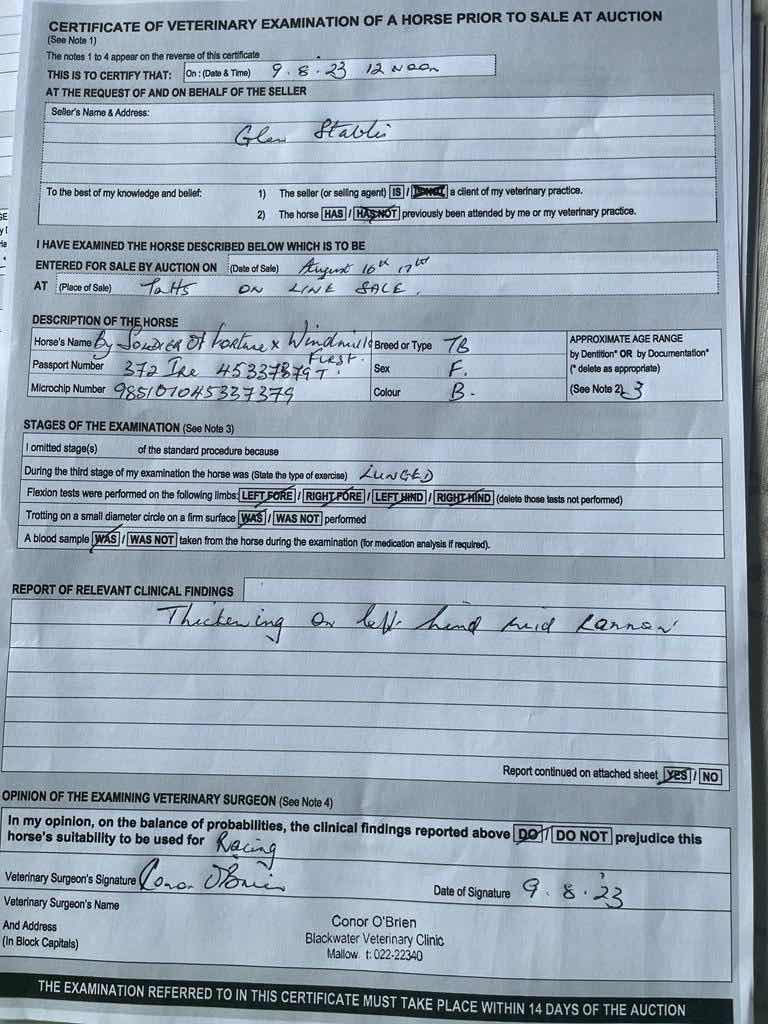 CERTIFICATE OF VETERINARY EXAMINATION OF A HORSE PRIOR TO SALE AT AUCTION
(See Note 1)
The notes 1 to 4 appear on the reverse of this certificate
THIS IS TO CERTIFY THAT: On : (Date & Time) 9.8.23 12 Noon
AT THE REQUEST OF AND ON BEHALF OF THE SELLER
Seller's Name & Address:
Glen Stables
To the best of my knowledge and belief: 1) The seller (or selling agent) IS / IS NOT a client of my veterinary practice.
2) The horse HAS / HAS NOT previously been attended by me or my veterinary practice.
I HAVE EXAMINED THE HORSE DESCRIBED BELOW WHICH IS TO BE
ENTERED FOR SALE BY AUCTION ON (Date of Sale) August 16th 17th
AT (Place of Sale) Tatts ON LINE SALE.
DESCRIPTION OF THE HORSE
Horse's Name By Soldier Of Fortune x Windmills First. Breed or Type TB
Passport Number 372 Ire 45337379 Sex F.
Microchip Number 985101045337379 Colour B.
APPROXIMATE AGE RANGE
by Dentition* OR by Documentation*
(* delete as appropriate)
(See Note 2) 3
STAGES OF THE EXAMINATION (See Note 3)
I omitted stage(s) of the standard procedure because
During the third stage of my examination the horse was (State the type of exercise) LUNGED
Flexion tests were performed on the following limbs: LEFT FORE / RIGHT FORE / LEFT HIND / RIGHT HIND (delete those tests not performed)
Trotting on a small diameter circle on a firm surface WAS / WAS NOT performed
A blood sample WAS / WAS NOT taken from the horse during the examination (for medication analysis if required).
REPORT OF RELEVANT CLINICAL FINDINGS
Thickening on left hind mid Cannon
Report continued on attached sheet YES / NO
OPINION OF THE EXAMINING VETERINARY SURGEON (See Note 4)
In my opinion, on the balance of probabilities, the clinical findings reported above DO / DO NOT prejudice this
horse's suitability to be used for Racing
Veterinary Surgeon's Signature Conor O'Brien Date of Signature 9.8.23
Veterinary Surgeon's Name
And Address
(In Block Capitals)
Conor O'Brien
Blackwater Veterinary Clinic
Mallow. t: 022-22340
THE EXAMINATION REFERRED TO IN THIS CERTIFICATE MUST TAKE PLACE WITHIN 14 DAYS OF THE AUCTION